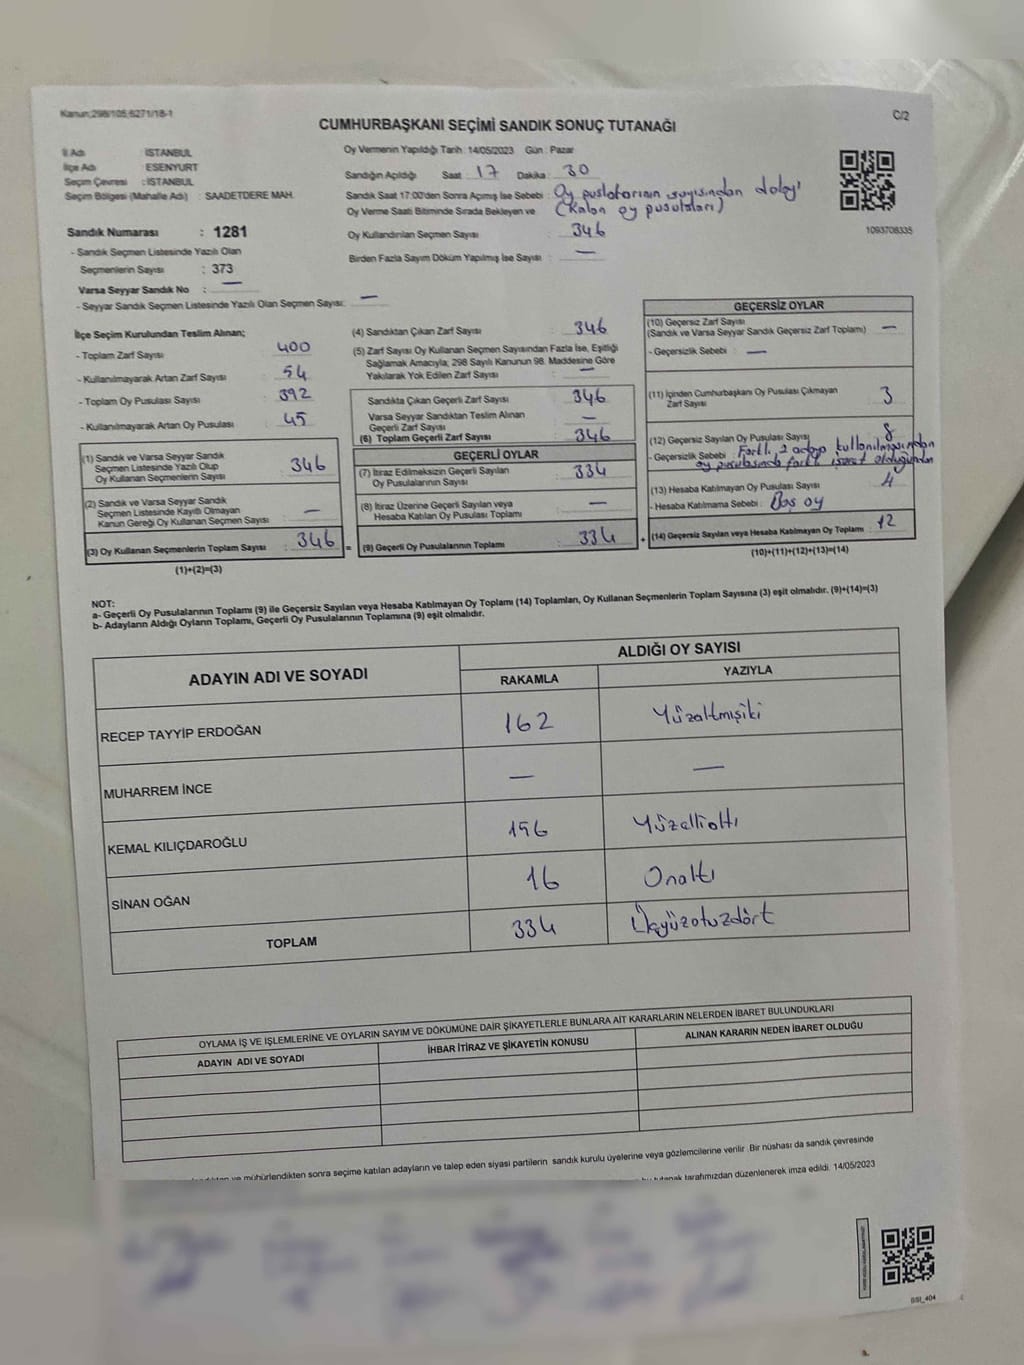 Kanun:298/105;6271/18-1
C/2
CUMHURBAŞKANI SEÇİMİ SANDIK SONUÇ TUTANAĞI
İl Adı : İSTANBUL
İlçe Adı : ESENYURT
Seçim Çevresi : İSTANBUL
Seçim Bölgesi (Mahalle Adı) : SAADETDERE MAH.
Oy Vermenin Yapıldığı Tarih :14/05/2023 Gün : Pazar
Sandığın Açıldığı Saat 17 Dakika : 30
Sandık Saat 17:00'den Sonra Açımış İse Sebebi : Oy pusulalarının sayısından dolayı
Oy Verme Saati Bitiminde Sırada Bekleyen ve (Kalan oy pusulaları)
Oy Kullandırılan Seçmen Sayısı : 346
Birden Fazla Sayım Döküm Yapılmış İse Sayısı : —
1093708335
Sandık Numarası : 1281
- Sandık Seçmen Listesinde Yazılı Olan
Seçmenlerin Sayısı : 373
Varsa Seyyar Sandık No : —
- Seyyar Sandık Seçmen Listesinde Yazılı Olan Seçmen Sayısı: —
İlçe Seçim Kurulundan Teslim Alınan;
- Toplam Zarf Sayısı : 400
- Kullanılmayarak Artan Zarf Sayısı : 54
- Toplam Oy Pusulası Sayısı : 392
- Kullanılmayarak Artan Oy Pusulası : 45
(1) Sandık ve Varsa Seyyar Sandık
Seçmen Listesinde Yazılı Olup
Oy Kullanan Seçmenlerin Sayısı : 346
(2) Sandık ve Varsa Seyyar Sandık
Seçmen Listesinde Kayıtlı Olmayan
Kanun Gereği Oy Kullanan Seçmen Sayısı : —
(3) Oy Kullanan Seçmenlerin Toplam Sayısı : 346
(1)+(2)=(3)
(4) Sandıktan Çıkan Zarf Sayısı : 346
(5) Zarf Sayısı Oy Kullanan Seçmen Sayısından Fazla İse, Eşitliği
Sağlamak Amacıyla; 298 Sayılı Kanunun 98. Maddesine Göre
Yakılarak Yok Edilen Zarf Sayısı : —
Sandıkta Çıkan Geçerli Zarf Sayısı : 346
Varsa Seyyar Sandıktan Teslim Alınan
Geçerli Zarf Sayısı : —
(6) Toplam Geçerli Zarf Sayısı : 346
GEÇERLİ OYLAR
(7) İtiraz Edilmeksizin Geçerli Sayılan
Oy Pusulalarının Sayısı : 334
(8) İtiraz Üzerine Geçerli Sayılan veya
Hesaba Katılan Oy Pusulası Toplamı : —
= (9) Geçerli Oy Pusulalarının Toplamı : 334 +
GEÇERSİZ OYLAR
(10) Geçersiz Zarf Sayısı
(Sandık ve Varsa Seyyar Sandık Geçersiz Zarf Toplamı) : —
- Geçersizlik Sebebi : —
(11) İçinden Cumhurbaşkanı Oy Pusulası Çıkmayan
Zarf Sayısı : 3
(12) Geçersiz Sayılan Oy Pusulası Sayısı : 8
- Geçersizlik Sebebi : Farklı 2 adaya kullanılmasından
oy pusulasında farklı işaret olduğundan
(13) Hesaba Katılmayan Oy Pusulası Sayısı : 4
- Hesaba Katılmama Sebebi : Boş oy
(14) Geçersiz Sayılan veya Hesaba Katılmayan Oy Toplamı : 12
(10)+(11)+(12)+(13)=(14)
NOT:
a- Geçerli Oy Pusulalarının Toplamı (9) ile Geçersiz Sayılan veya Hesaba Katılmayan Oy Toplamı (14) Toplamları, Oy Kullanan Seçmenlerin Toplam Sayısına (3) eşit olmalıdır. (9)+(14)=(3)
b- Adayların Aldığı Oyların Toplamı, Geçerli Oy Pusulalarının Toplamına (9) eşit olmalıdır.
ADAYIN ADI VE SOYADI
ALDIĞI OY SAYISI
RAKAMLA YAZIYLA
RECEP TAYYİP ERDOĞAN 162 Yüzaltmışiki
MUHARREM İNCE — —
KEMAL KILIÇDAROĞLU 156 Yüzellialtı
SİNAN OĞAN 16 Onaltı
TOPLAM 334 Üçyüzotuzdört
OYLAMA İŞ VE İŞLEMLERİNE VE OYLARIN SAYIM VE DÖKÜMÜNE DAİR ŞİKAYETLERLE BUNLARA AİT KARARLARIN NELERDEN İBARET BULUNDUKLARI
ADAYIN ADI VE SOYADI İHBAR İTİRAZ VE ŞİKAYETİN KONUSU ALINAN KARARIN NEDEN İBARET OLDUĞU
ve mühürlendikten sonra seçime katılan adayların ve talep eden siyasi partilerin sandık kurulu üyelerine veya gözlemcilerine verilir. Bir nüshası da sandık çevresinde
tutanak tarafımızdan düzenlenerek imza edildi. 14/05/2023
SSI_404